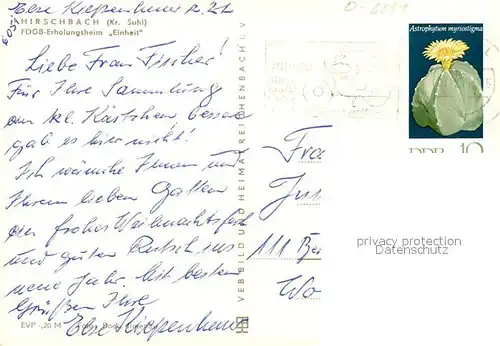 Else Kiepenheuer z. Zt.
HIRSCHBACH (Kr. Suhl)
FDGB-Erholungsheim „Einheit"
Liebe Frau Fischer!
Für Ihre Sammlung
ein kl. Kästchen, bessere
gab es hier nicht!
Ich wünsche Ihnen und
Ihrem lieben Gatten
ein frohes Weihnachtsfest
und guten Rutsch ins
neue Jahr. Mit besten
Grüßen Ihre
Else Kiepenheuer
EVP -,20 M
VEB BILD UND HEIMAT REICHENBACH I. V
Astrophytum myriostigma
DDR 10
Fra
111 Ber
Wo
privacy protection
Datenschutz